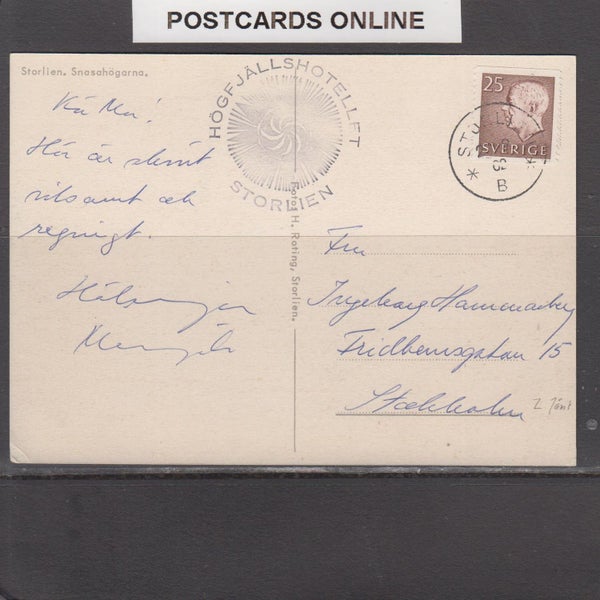 POSTCARDS ONLINE
Storlien. Snasahögarna.
HÖGFJÄLLSHOTELLET
STORLIEN
25
SVERIGE
B
Kära Mor!
Här är skönt
vilsamt och
regnigt.
Hälsningar
Foto: H. Roting, Storlien.
Fru
Ingeborg Hammarberg
Fridhemsgatan 15
Stockholm